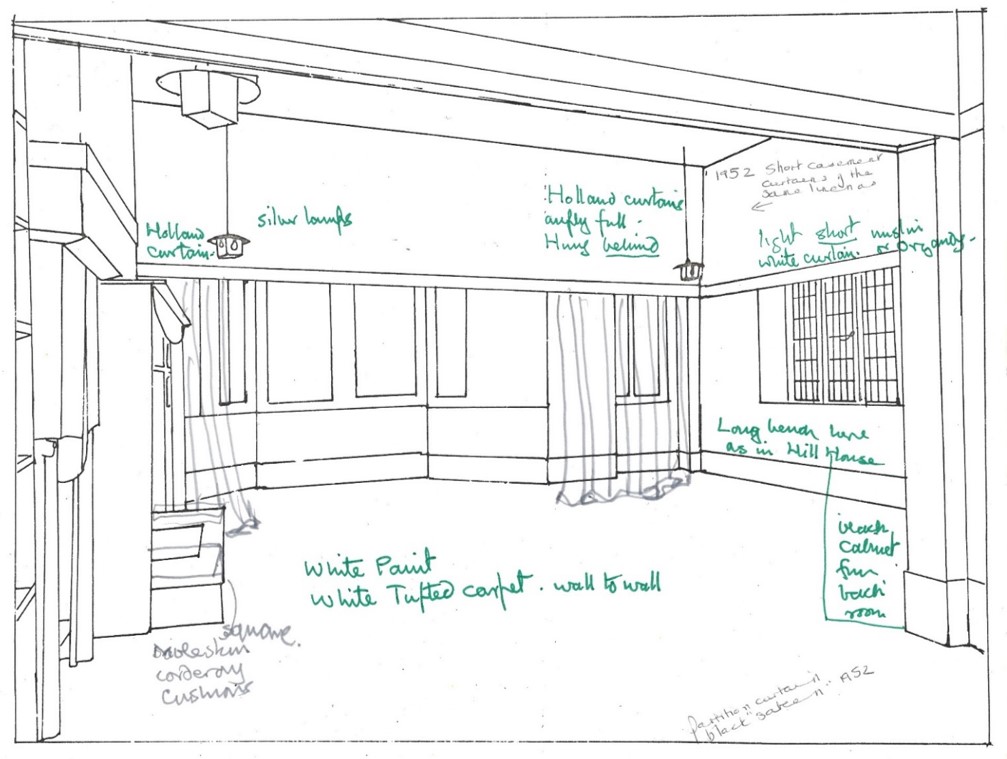 1952 Short casement
curtains of the
same
Holland
curtain.
silver lamps
Holland curtains
amply full.
Hung behind
light short muslin
white curtain. or Organdy.
Long bench here
as in Hill House
black
cabinet
from
back
room
White Paint
White Tufted carpet. wall to wall
square.
corderoy
cushions
partition curtain
black sateen 1952